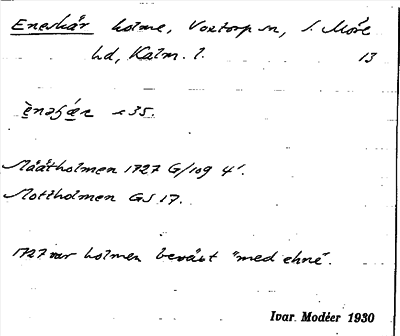 Eneskär holme, Voxtorp sn, S. Möre
hd, Kalm. l. 13
s 35.
Mååtholmen 1727 G/109 4'.
Mottholmen GS 17.
1727 var holmen beväxt "med ehne".
Ivar Modéer 1930